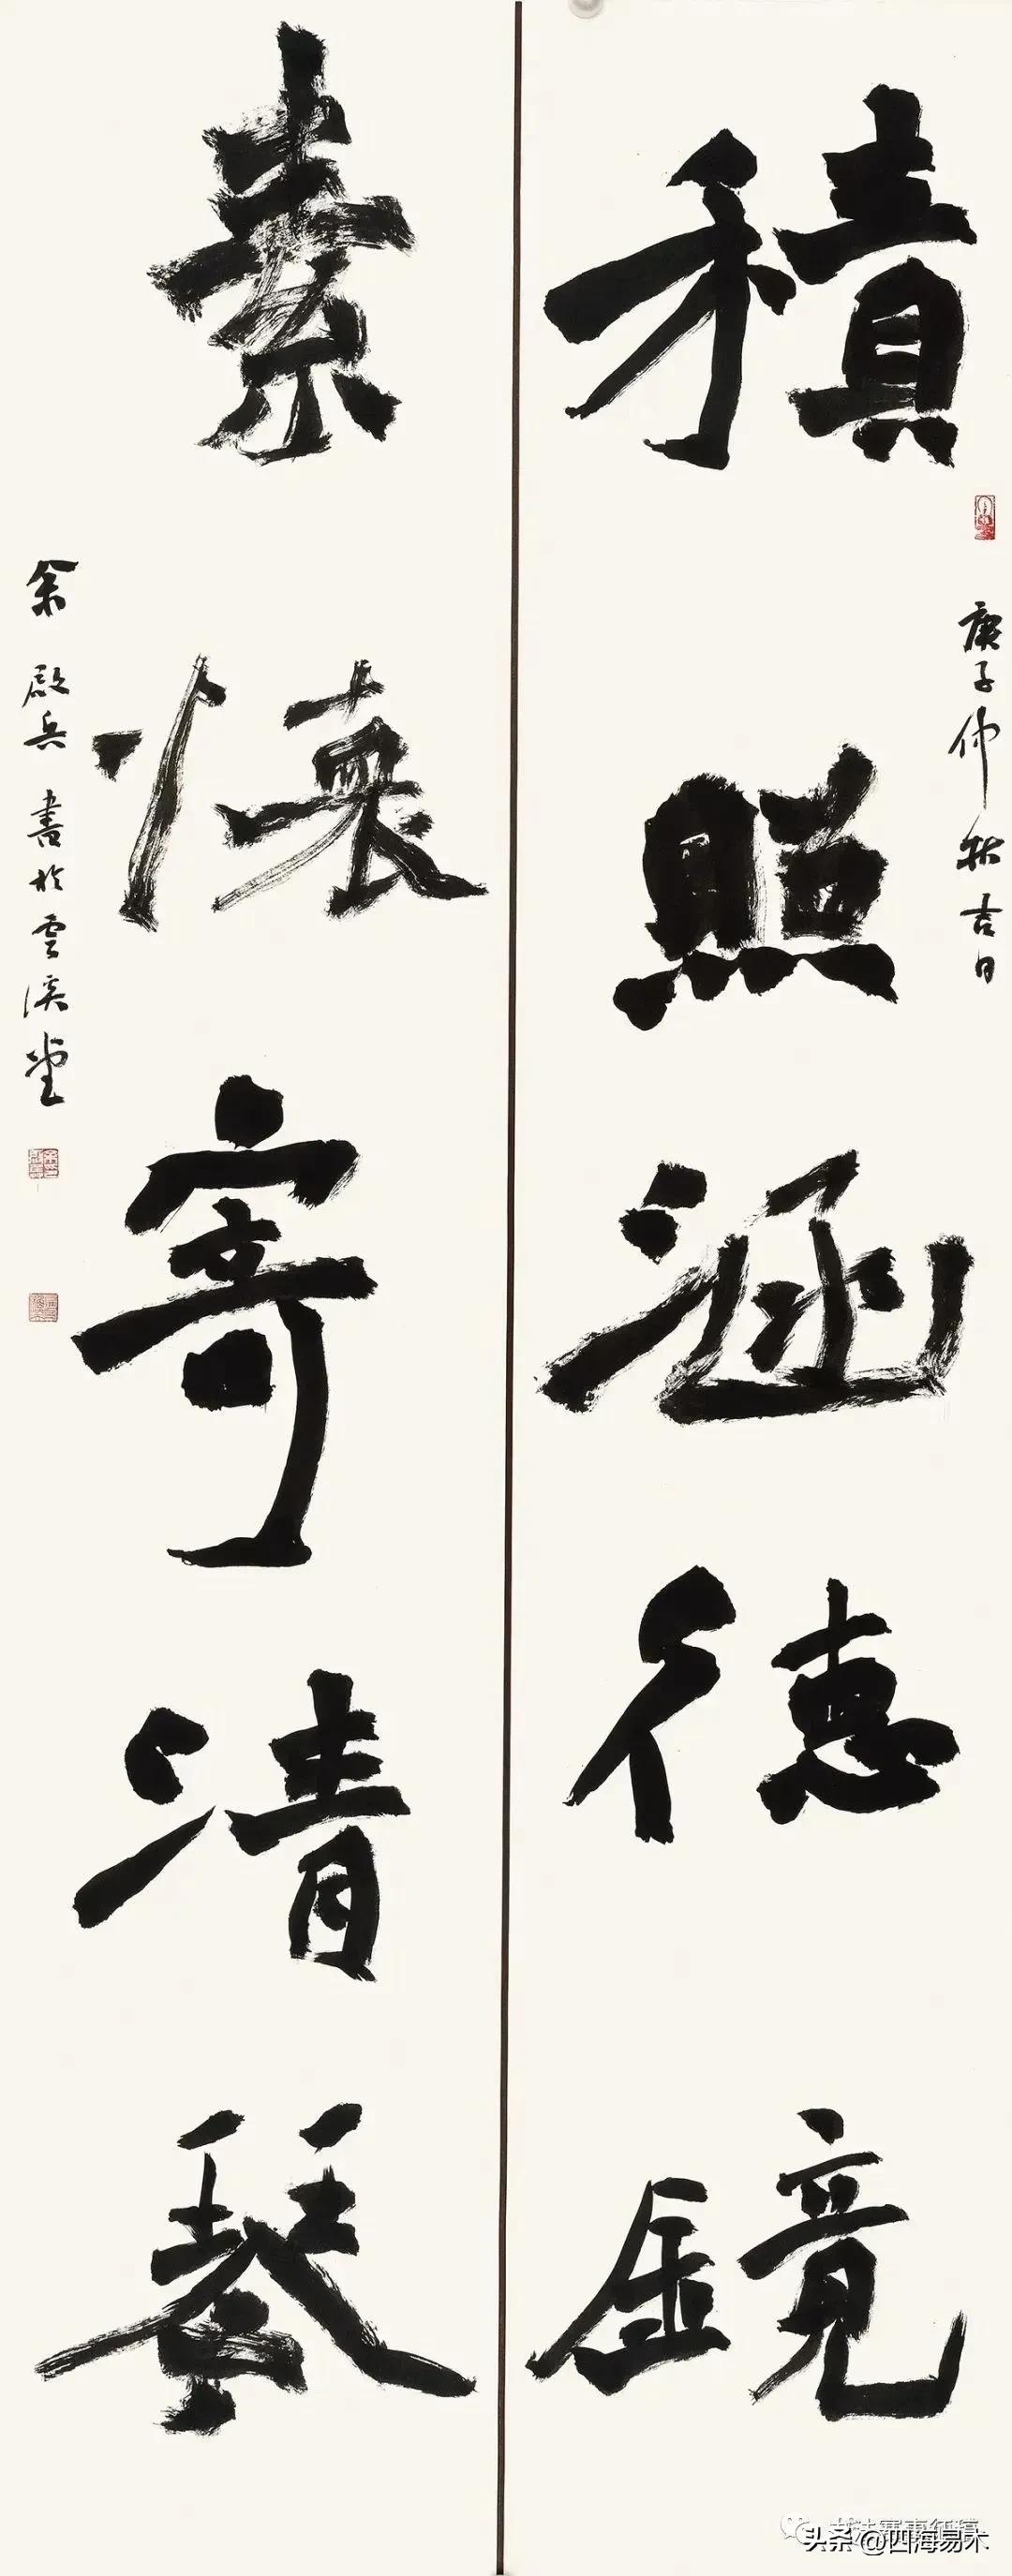 積照涵德鏡
庚子仲秋吉日
素懷寄清琴
余啟兵書於雲溪堂
头条 @四海易术